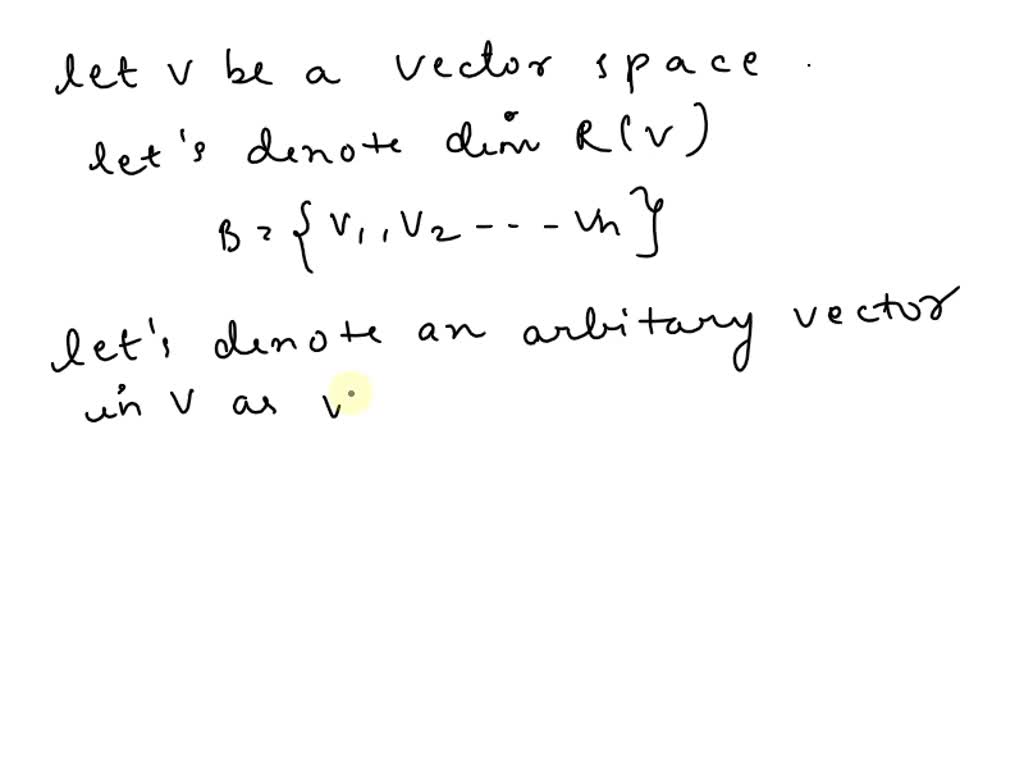 let v be a vector space.
let's denote dim R(V)
B = {V1, V2 --- Vn}
let's denote an arbitary vector
in V as v